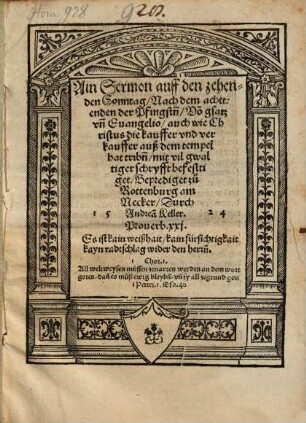 Hom. 928
920.
Ain Sermon auff den zehen-
den Sonntag / Nach dem achte-
enden der Pfingstn̄ / Võ gsatz
vn̄ Euangelio / auch wie Ch
ristus die kauffer vnd ver
kauffer auß dem tempel
hat tribn̄ / mit vil gwal
tiger schryfft befesti
get / Geprediget zů
Rottenburg am
Necker / Durch
15 Andreā Keller. 24
Prouerb. xxj.
Es ist kain weißhait / kain fürsichtigkait
kayn radtschlag wider den herrn̄.
1 Chor. 1.
All weltweysen müssen zů narren werden an dem wort
gottes, daß es můß ewig bleybē, wen̄ all zůgrund gon
1 Petri. 1. Esa. 40